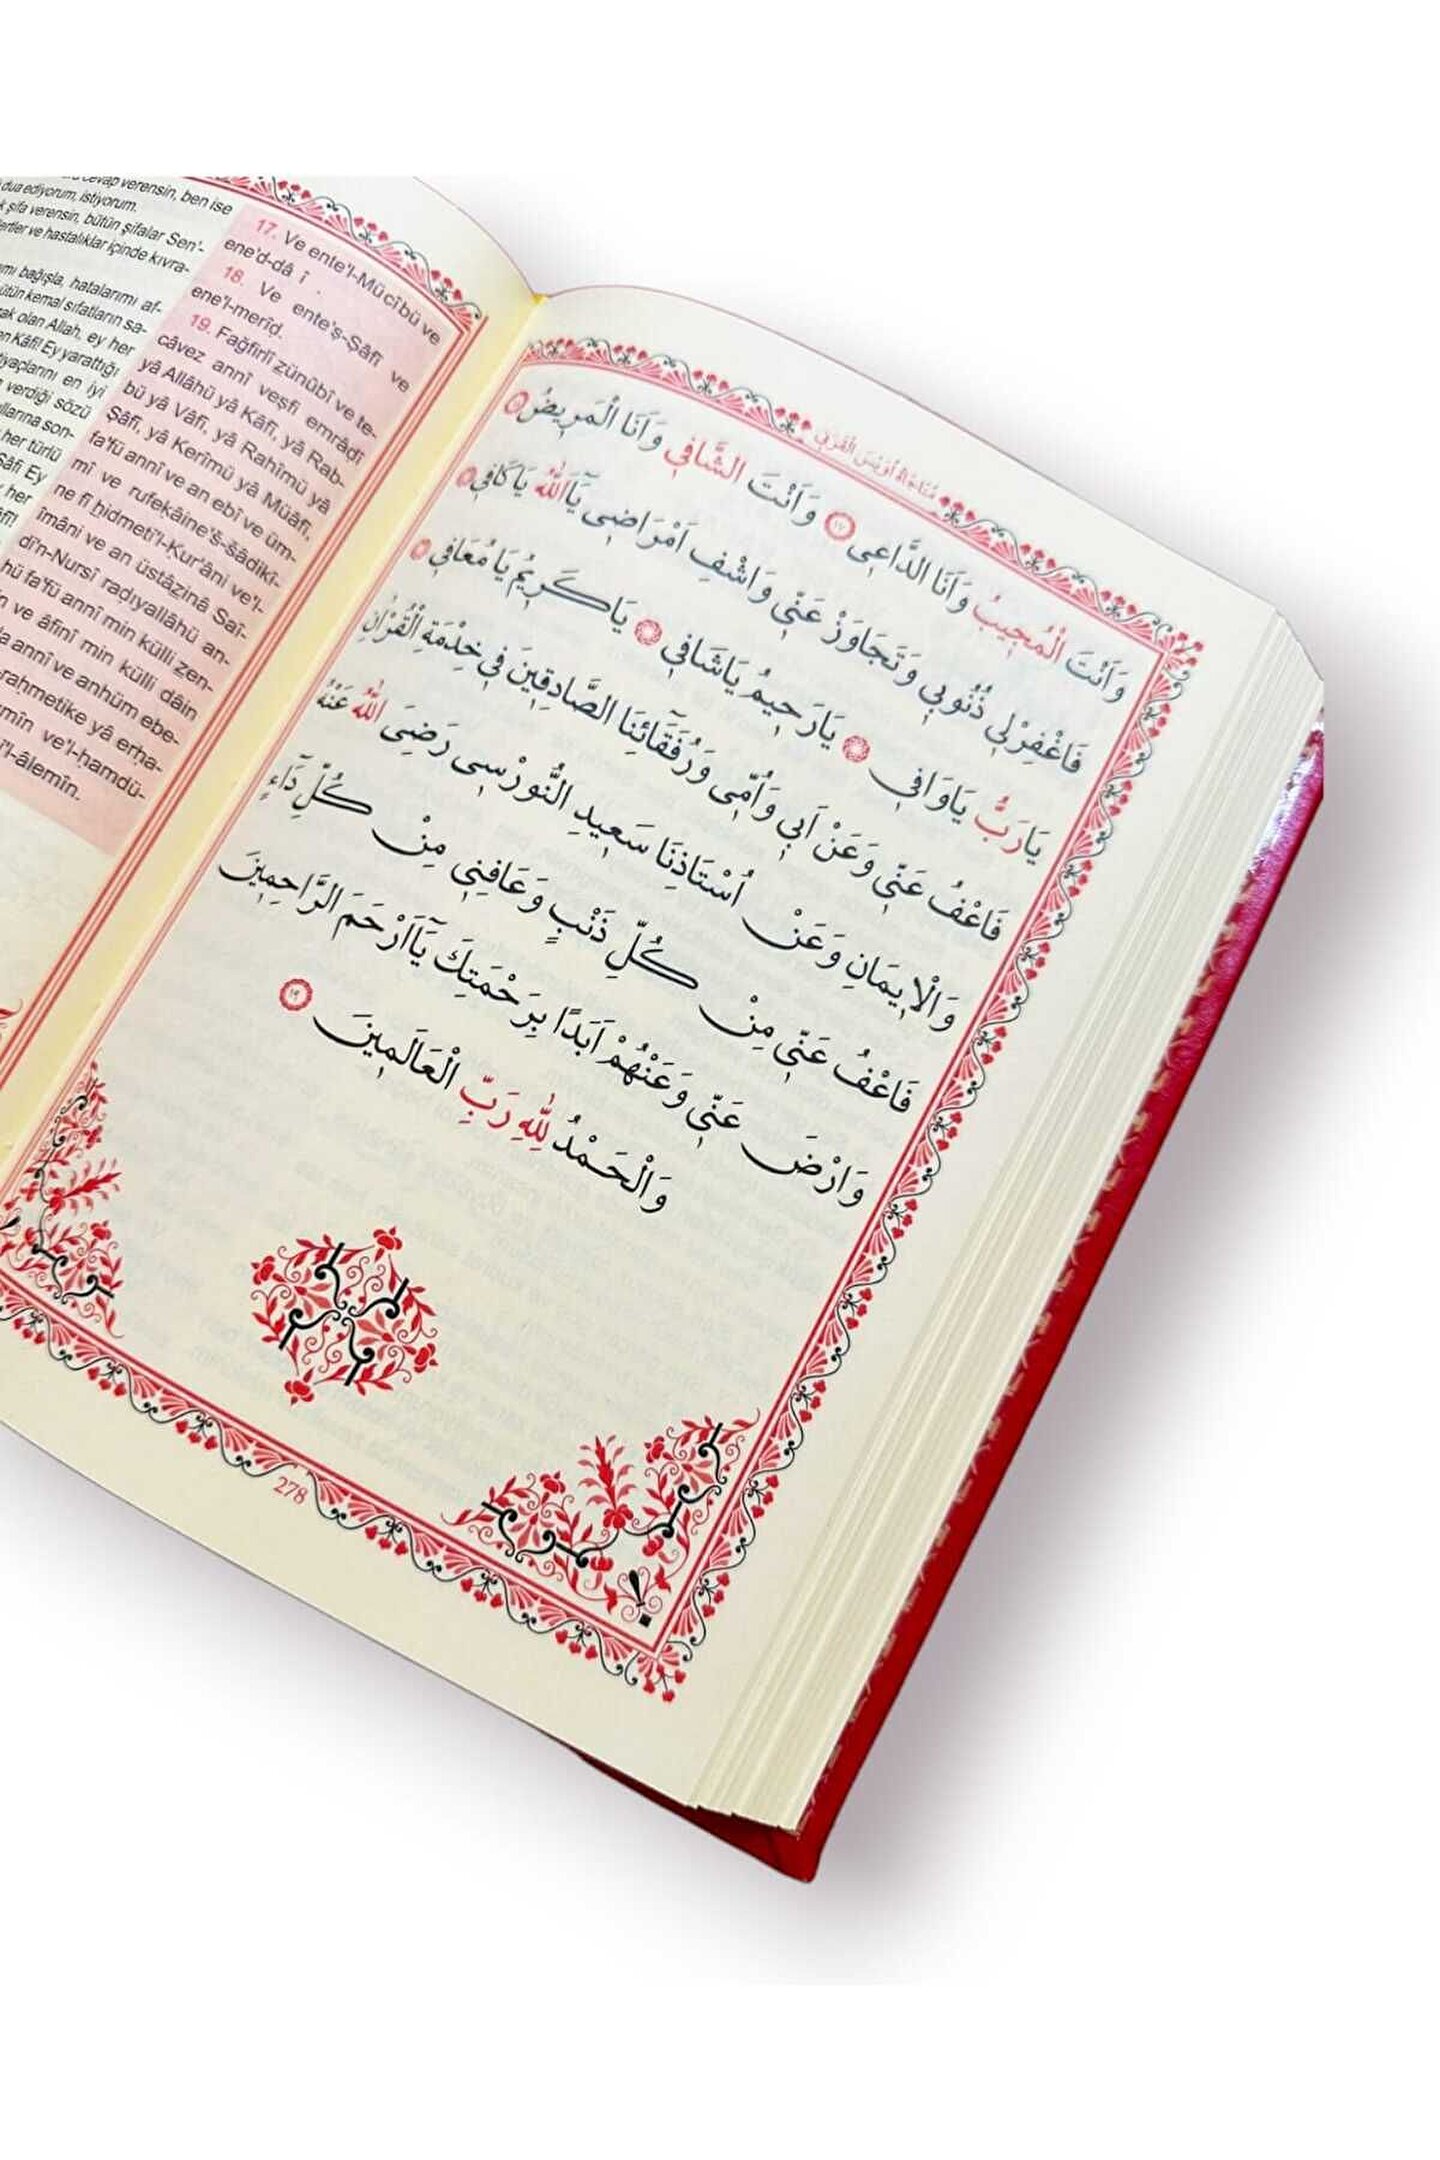 cevap verensin, ben ise
dua ediyorum, istiyorum.
şifa verensin, bütün şifalar Sen'-
dertler ve hastalıklar içinde kıvra-
bağışla, hatalarımı af-
bütün kemal sıfatların sa-
olan Allah, ey her
Kâfî! Ey yarattığı
en iyi
verdiği sözü
son-
her türlü
Şâfî Ey
her
17. Ve ente'l-Mücîbü ve
ene'd-dâ î
18. Ve ente'ş-Şâfî ve
ene'l-merîḍ.
19. Fağfirlî zünûbî ve te-
câvez annî veşfi emrâḍî
yâ Allâhü yâ Kâfî, yâ Rab-
bü yâ Vâfî, yâ Rahîmü yâ
Şâfî, yâ Kerîmü yâ Müâfî,
fa'fü annî ve an ebî ve üm-
mî ve rufekâine'ṣ-ṣâdikî-
ne fî ḫidmeti'l-Ḳur'âni ve'l-
îmâni ve an üstâẕinâ Saî-
di'n-Nursî raḍıyallâhü an-
hü fa'fü annî min külli zen-
ve âfinî min külli dâin
annî ve anhüm ebe-
raḥmetike yâ erḥa-
ve'l-ḥamdü-
'l-âlemîn.
مُنَاجَاةُ أُوَيْسَ الْقَرَنِي
وَاَنْتَ الْمُجِيبُ وَاَنَا الدَّاعِى ١٧ وَاَنْتَ الشَّافِى وَاَنَا الْمَرِيضُ ١٨
فَاغْفِرْلِى ذُنُوبِى وَتَجَاوَزْ عَنِّى وَاشْفِ اَمْرَاضِى يَآاَللّٰهُ يَاكَافِى
يَارَبُّ يَاوَافِى يَارَحِيمُ يَاشَافِى يَاكَرِيمُ يَامُعَافِى
فَاعْفُ عَنِّى وَعَنْ اَبِى وَاُمِّى وَرُفَقَآئِنَا الصَّادِقِينَ فِى خِدْمَةِ الْقُرْاٰنِ
وَالْاِيمَانِ وَعَنْ اُسْتَاذِنَا سَعِيدِ النُّورْسِى رَضِىَ اللّٰهُ عَنْهُ
فَاعْفُ عَنِّى مِنْ كُلِّ ذَنْبٍ وَعَافِنِى مِنْ كُلِّ دَآءٍ
وَارْضَ عَنِّى وَعَنْهُمْ اَبَدًا بِرَحْمَتِكَ يَآاَرْحَمَ الرَّاحِمِينَ
وَالْحَمْدُ لِلّٰهِ رَبِّ الْعَالَمِينَ ١٩
278